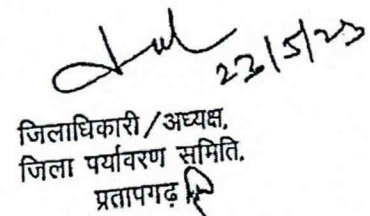 23/5/23
जिलाधिकारी/अध्यक्ष,
जिला पर्यावरण समिति,
प्रतापगढ़